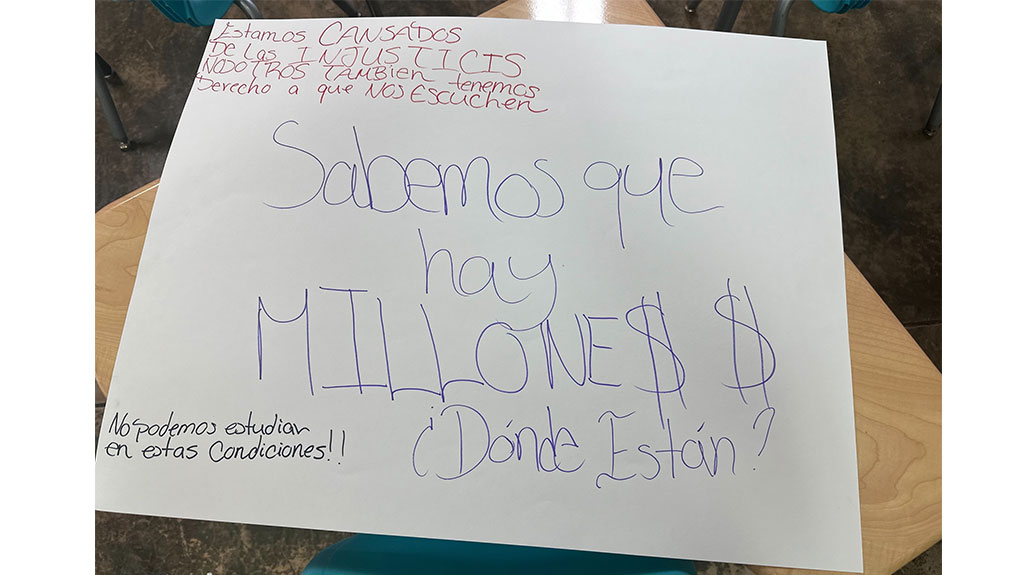 Estamos CANSADOS
De las INJUSTICIS
NOSOTROS TAMBIEN tenemos
Derecho a que NOS ESCUCHEN
Sabemos que
hay
MILLONE$ $
¿Dónde Están?
No podemos estudiar
en estas Condiciones!!